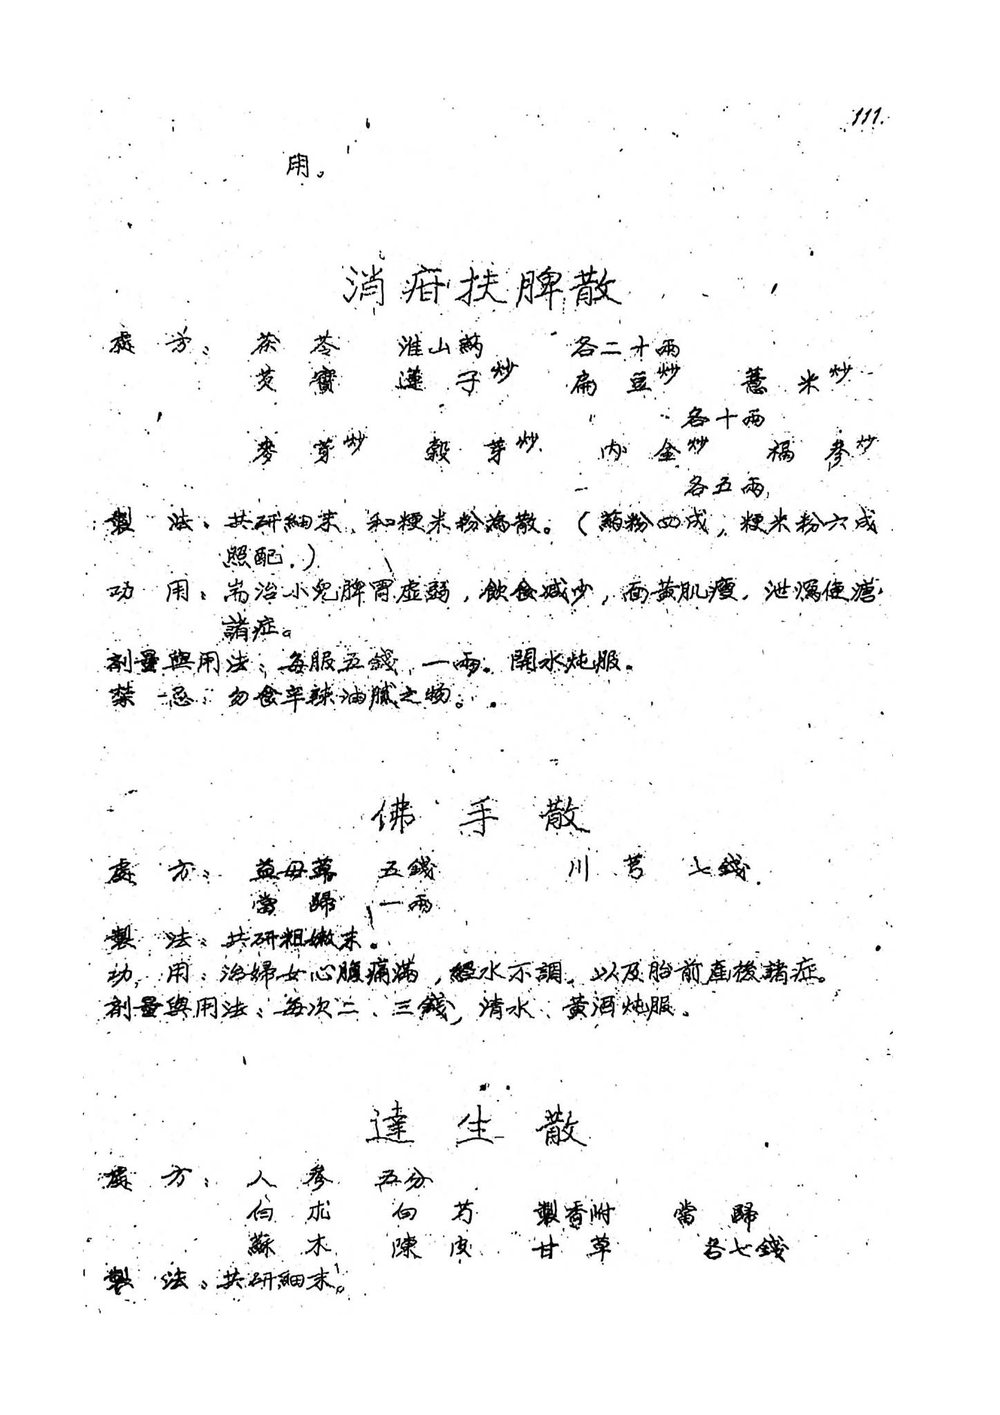 111.
用。
消疳扶脾散
處方：茯苓 淮山葯 各二十兩
芡實 蓮子炒 扁豆炒 薏米炒
各十兩
麥芽炒 穀芽炒 內金炒 福參炒
各五兩
製法：共研細末、和粳米粉為散。（葯粉四成，粳米粉六成
照配.）
功用：耑治小兒脾胃虛弱，飲食減少，面黃肌瘦，泄瀉便溏，
諸症。
劑量與用法：每服五錢、一兩。開水炖服。
禁忌：勿食辛辣油膩之物。
佛手散
處方：益母草 五錢 川芎 七錢
當歸 一兩
製法：共研粗嫩末。
功用：治婦女心腹痛滿，經水不調，以及胎前產後諸症。
劑量與用法：每次二、三錢，清水、黃酒炖服。
達生散
處方：人參 五分
白朮 白芍 製香附 當歸
蘇木 陳皮 甘草 各七錢
製法：共研細末。